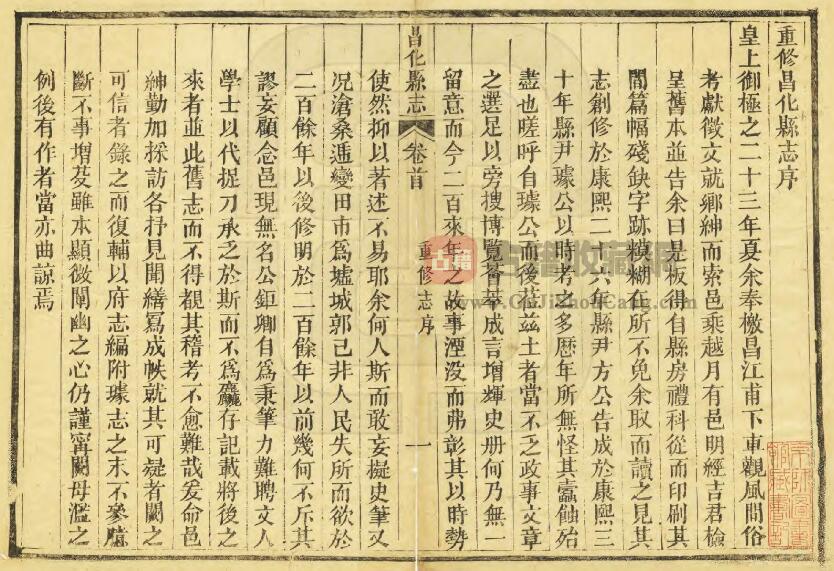 重修昌化縣志序
皇上御極之二十三年夏余奉檄昌江甫下車觀風問俗
考獻徵文就鄉紳而索邑乘越月有邑明經吉君檢
呈舊本並告余曰是板得自縣房禮科從而印刷其
間篇幅殘缺字跡模糊在所不免余取而讀之見其
志創修於康熙二十六年縣尹方公告成於康熙三
十年縣尹璩公以時考之多歷年所無怪其蠹蝕殆
盡也嗟呼自璩公而後蒞茲土者當不乏政事文章
之選足以旁搜博覽薈萃成言增輝史册何乃無一
留意而今二百來年之故事湮没而弗彰其以時勢
昌化縣志
卷首
重修志序
一
使然抑以著述不易耶余何人斯而敢妄擬史筆又
况滄桑遞變田市爲墟城郭已非人民失所而欲於
二百餘年以後修明於二百餘年以前幾何不斥其
謬妄顧念邑現無名公鉅卿自爲秉筆力難聘文人
學士以代捉刀承乏於斯而不爲麤存記載將後之
來者並此舊志而不得覩其稽考不愈難哉爰命邑
紳勤加採訪各抒見聞繕寫成帙就其可疑者闕之
可信者錄之而復輔以府志編附璩志之末不參臆
斷不事增芟雖本顯微闡幽之心仍謹甯闕毋濫之
例後有作者當亦曲諒焉
古籍收藏網
www.GuJiShouCang.com